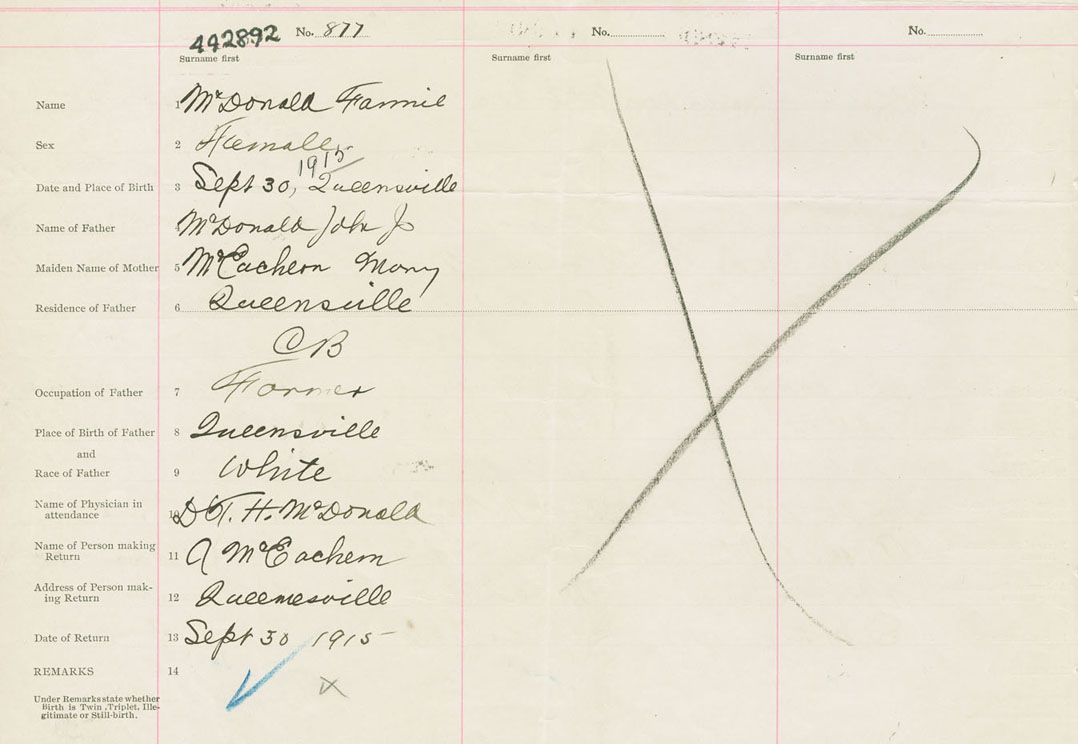 442892 No. 877 No. No.
Surname first Surname first Surname first
Name 1 McDonald Fannie
Sex 2 Female
1915
Date and Place of Birth 3 Sept 30, Queensville
Name of Father 4 McDonald John J
Maiden Name of Mother 5 McEachern Mary
Residence of Father 6 Queensville
CB
Occupation of Father 7 Farmer
Place of Birth of Father 8 Queensville
and
Race of Father 9 White
Name of Physician in
attendance 10 Dr T. H. McDonald
Name of Person making
Return 11 A McEachern
Address of Person mak-
ing Return 12 Queenesville
Date of Return 13 Sept 30 1915
REMARKS 14
Under Remarks state whether
Birth is Twin, Triplet, Ille-
gitimate or Still-birth.